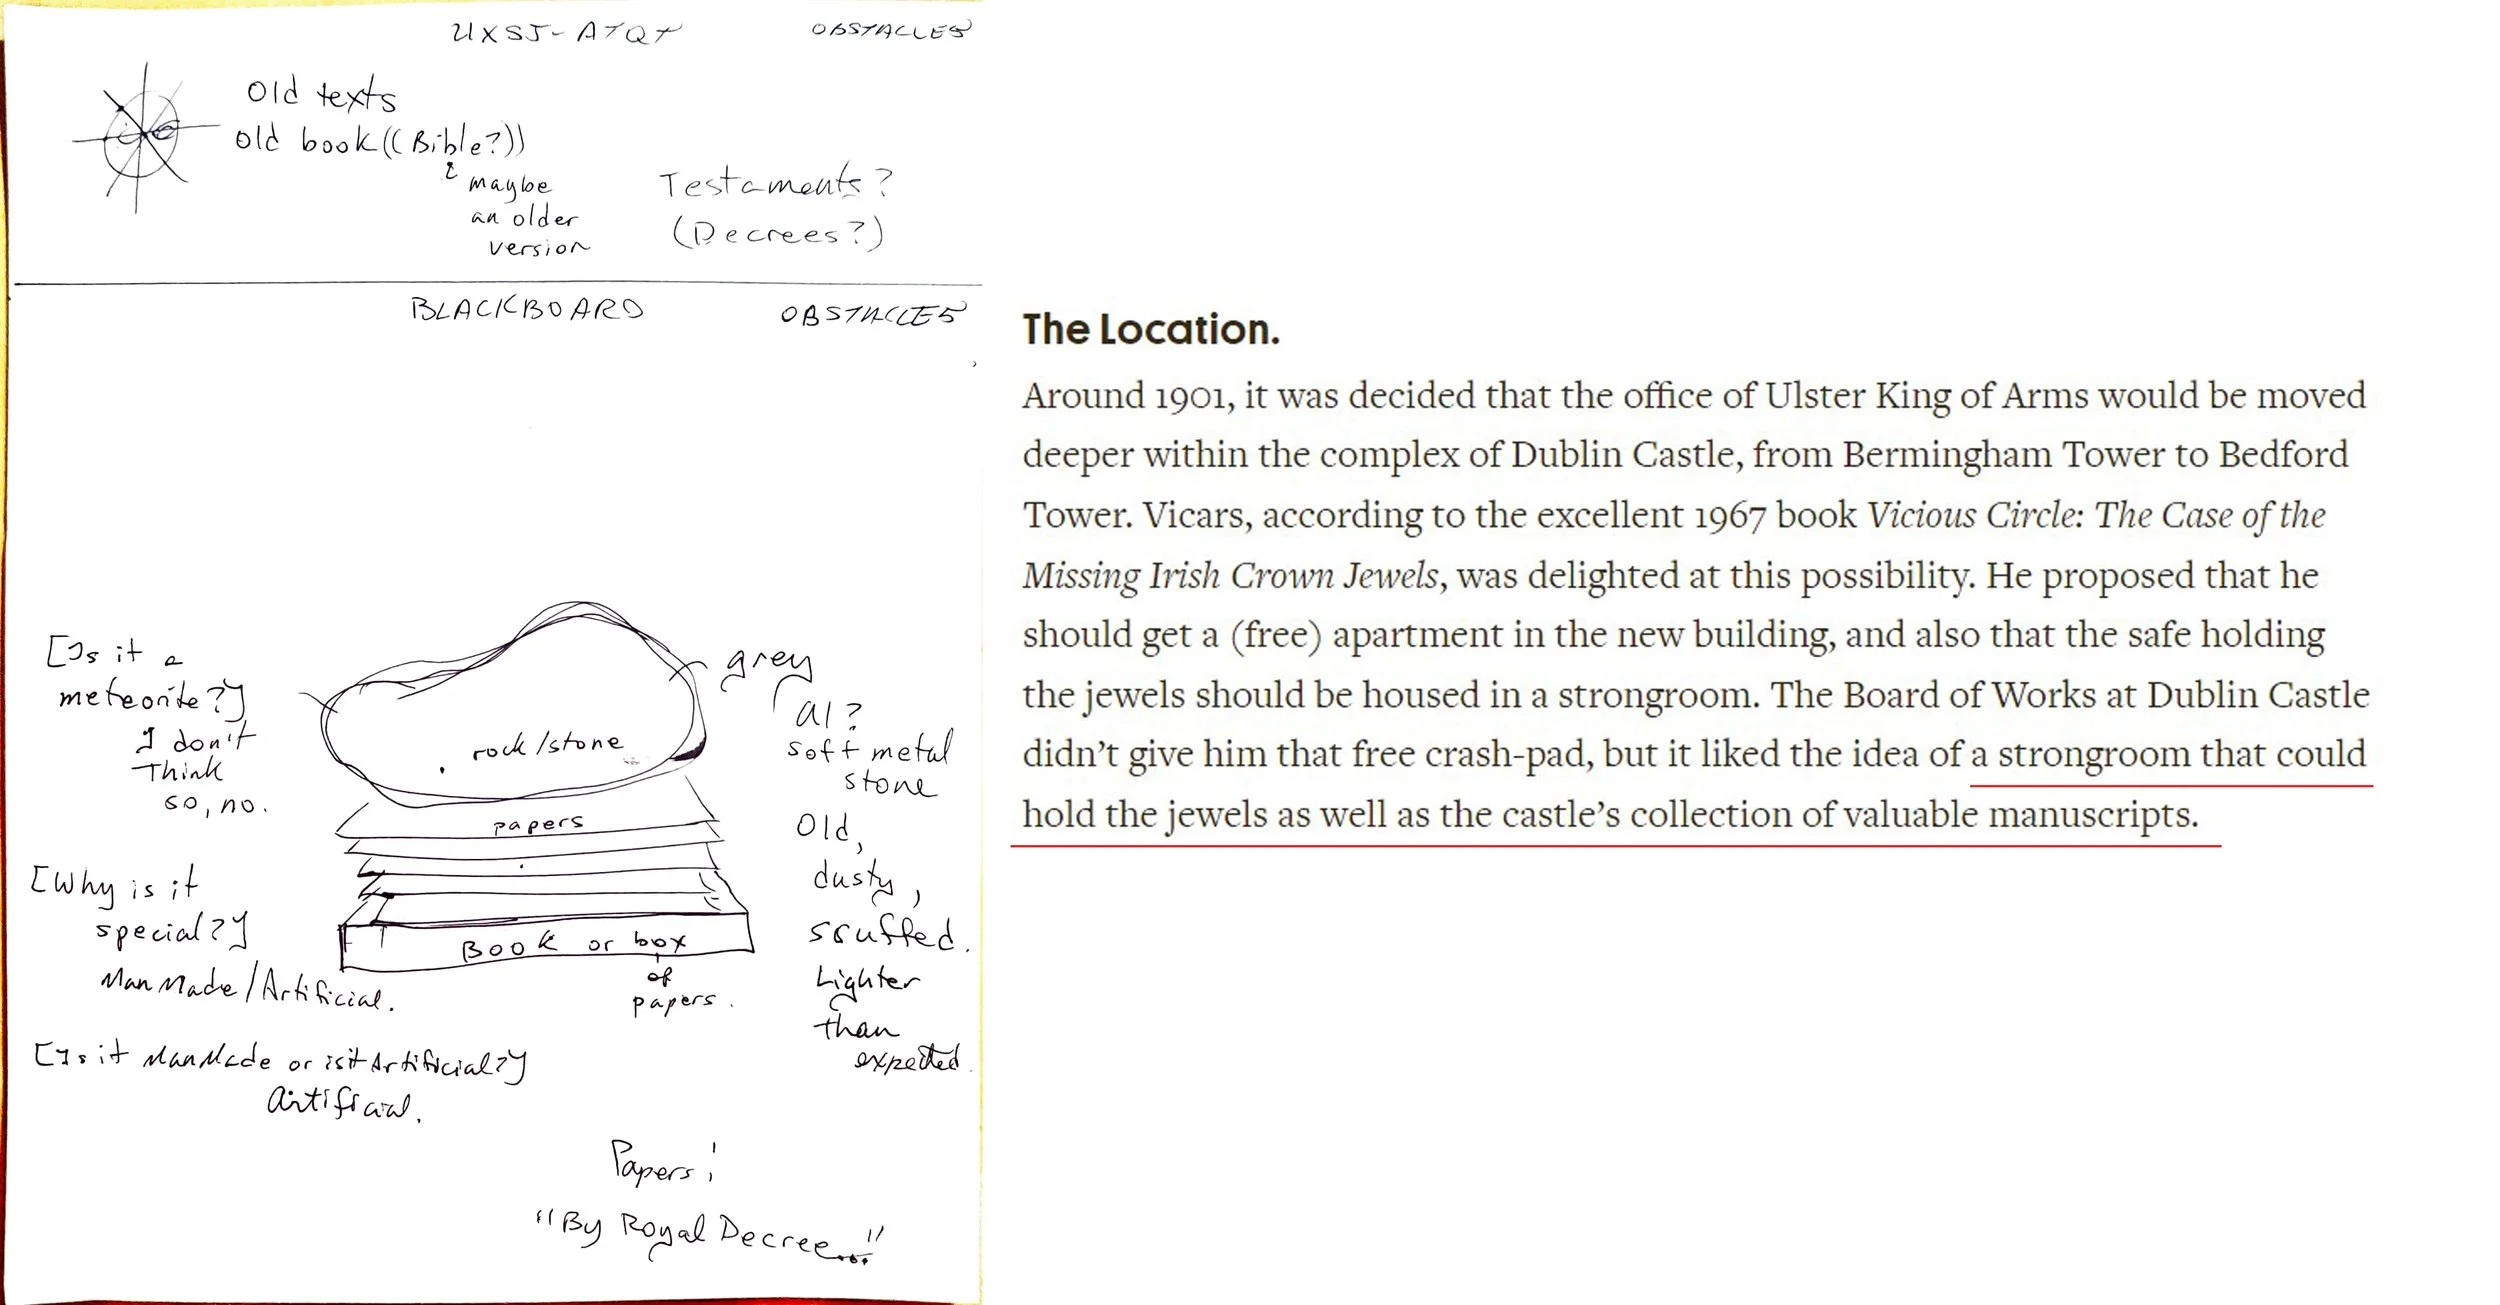 UXSJ-ATQT
OBSTACLES
Old texts
Old book ((Bible?))
maybe
an older
version
Testaments?
(Decrees?)
BLACKBOARD
OBSTACLES
[Is it a
meteorite?]
I don't
Think
so, no.
grey
rock/stone
Al?
soft metal
stone
papers
Old,
dusty,
scuffed.
Lighter
than
expected.
[Why is it
special?]
ManMade/Artificial.
Book or box
of
papers.
[Is it ManMade or is it Artificial?]
Artificial.
Papers:
"By Royal Decree..."
The Location.
Around 1901, it was decided that the office of Ulster King of Arms would be moved
deeper within the complex of Dublin Castle, from Bermingham Tower to Bedford
Tower. Vicars, according to the excellent 1967 book Vicious Circle: The Case of the
Missing Irish Crown Jewels, was delighted at this possibility. He proposed that he
should get a (free) apartment in the new building, and also that the safe holding
the jewels should be housed in a strongroom. The Board of Works at Dublin Castle
didn't give him that free crash-pad, but it liked the idea of a strongroom that could
hold the jewels as well as the castle's collection of valuable manuscripts.